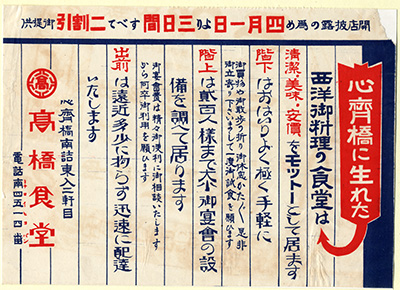 開店披露の爲め四月一日より三日間すべて二割引御提供
心齊橋に生れた
西洋御料理の食堂は
清潔、美味、安價をモットーとして居ます
階下はおはりよく極く手軽に
御買物や御散歩の折り御休息かたがた是非
御立寄り下さいまして一度御試食を願ひます
階上は貮百人様まで大小御宴會の設
備を調べて居ります
御宴會費は精々御便利に御相談いたします
から何卒御利用を願ひます
出前は遠近多少に拘らず迅速に配達
いたします
心齊橋南詰東入三軒目
髙橋食堂
電話南四五一四番